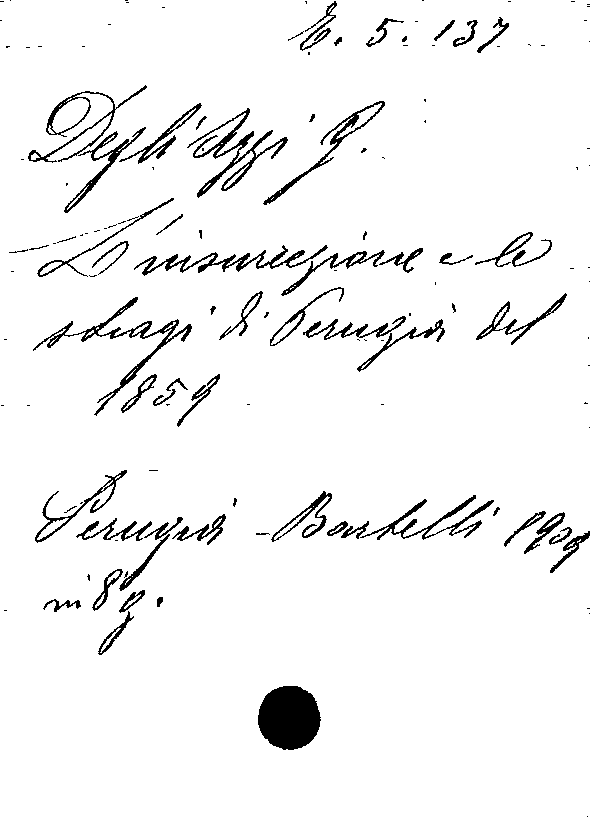 E. 5. 137
Degli Azzi G.
L'insurrezione e le
stragi di Perugia del
1859
Perugia - Bartelli 1909
in 8º g.